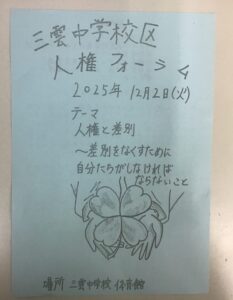 三雲中学校区
人権フォーラム
2025年12月2日(火)
テーマ
人権と差別
〜差別をなくすために
自分たちがしなければ
ならないこと
場所 三雲中学校 体育館